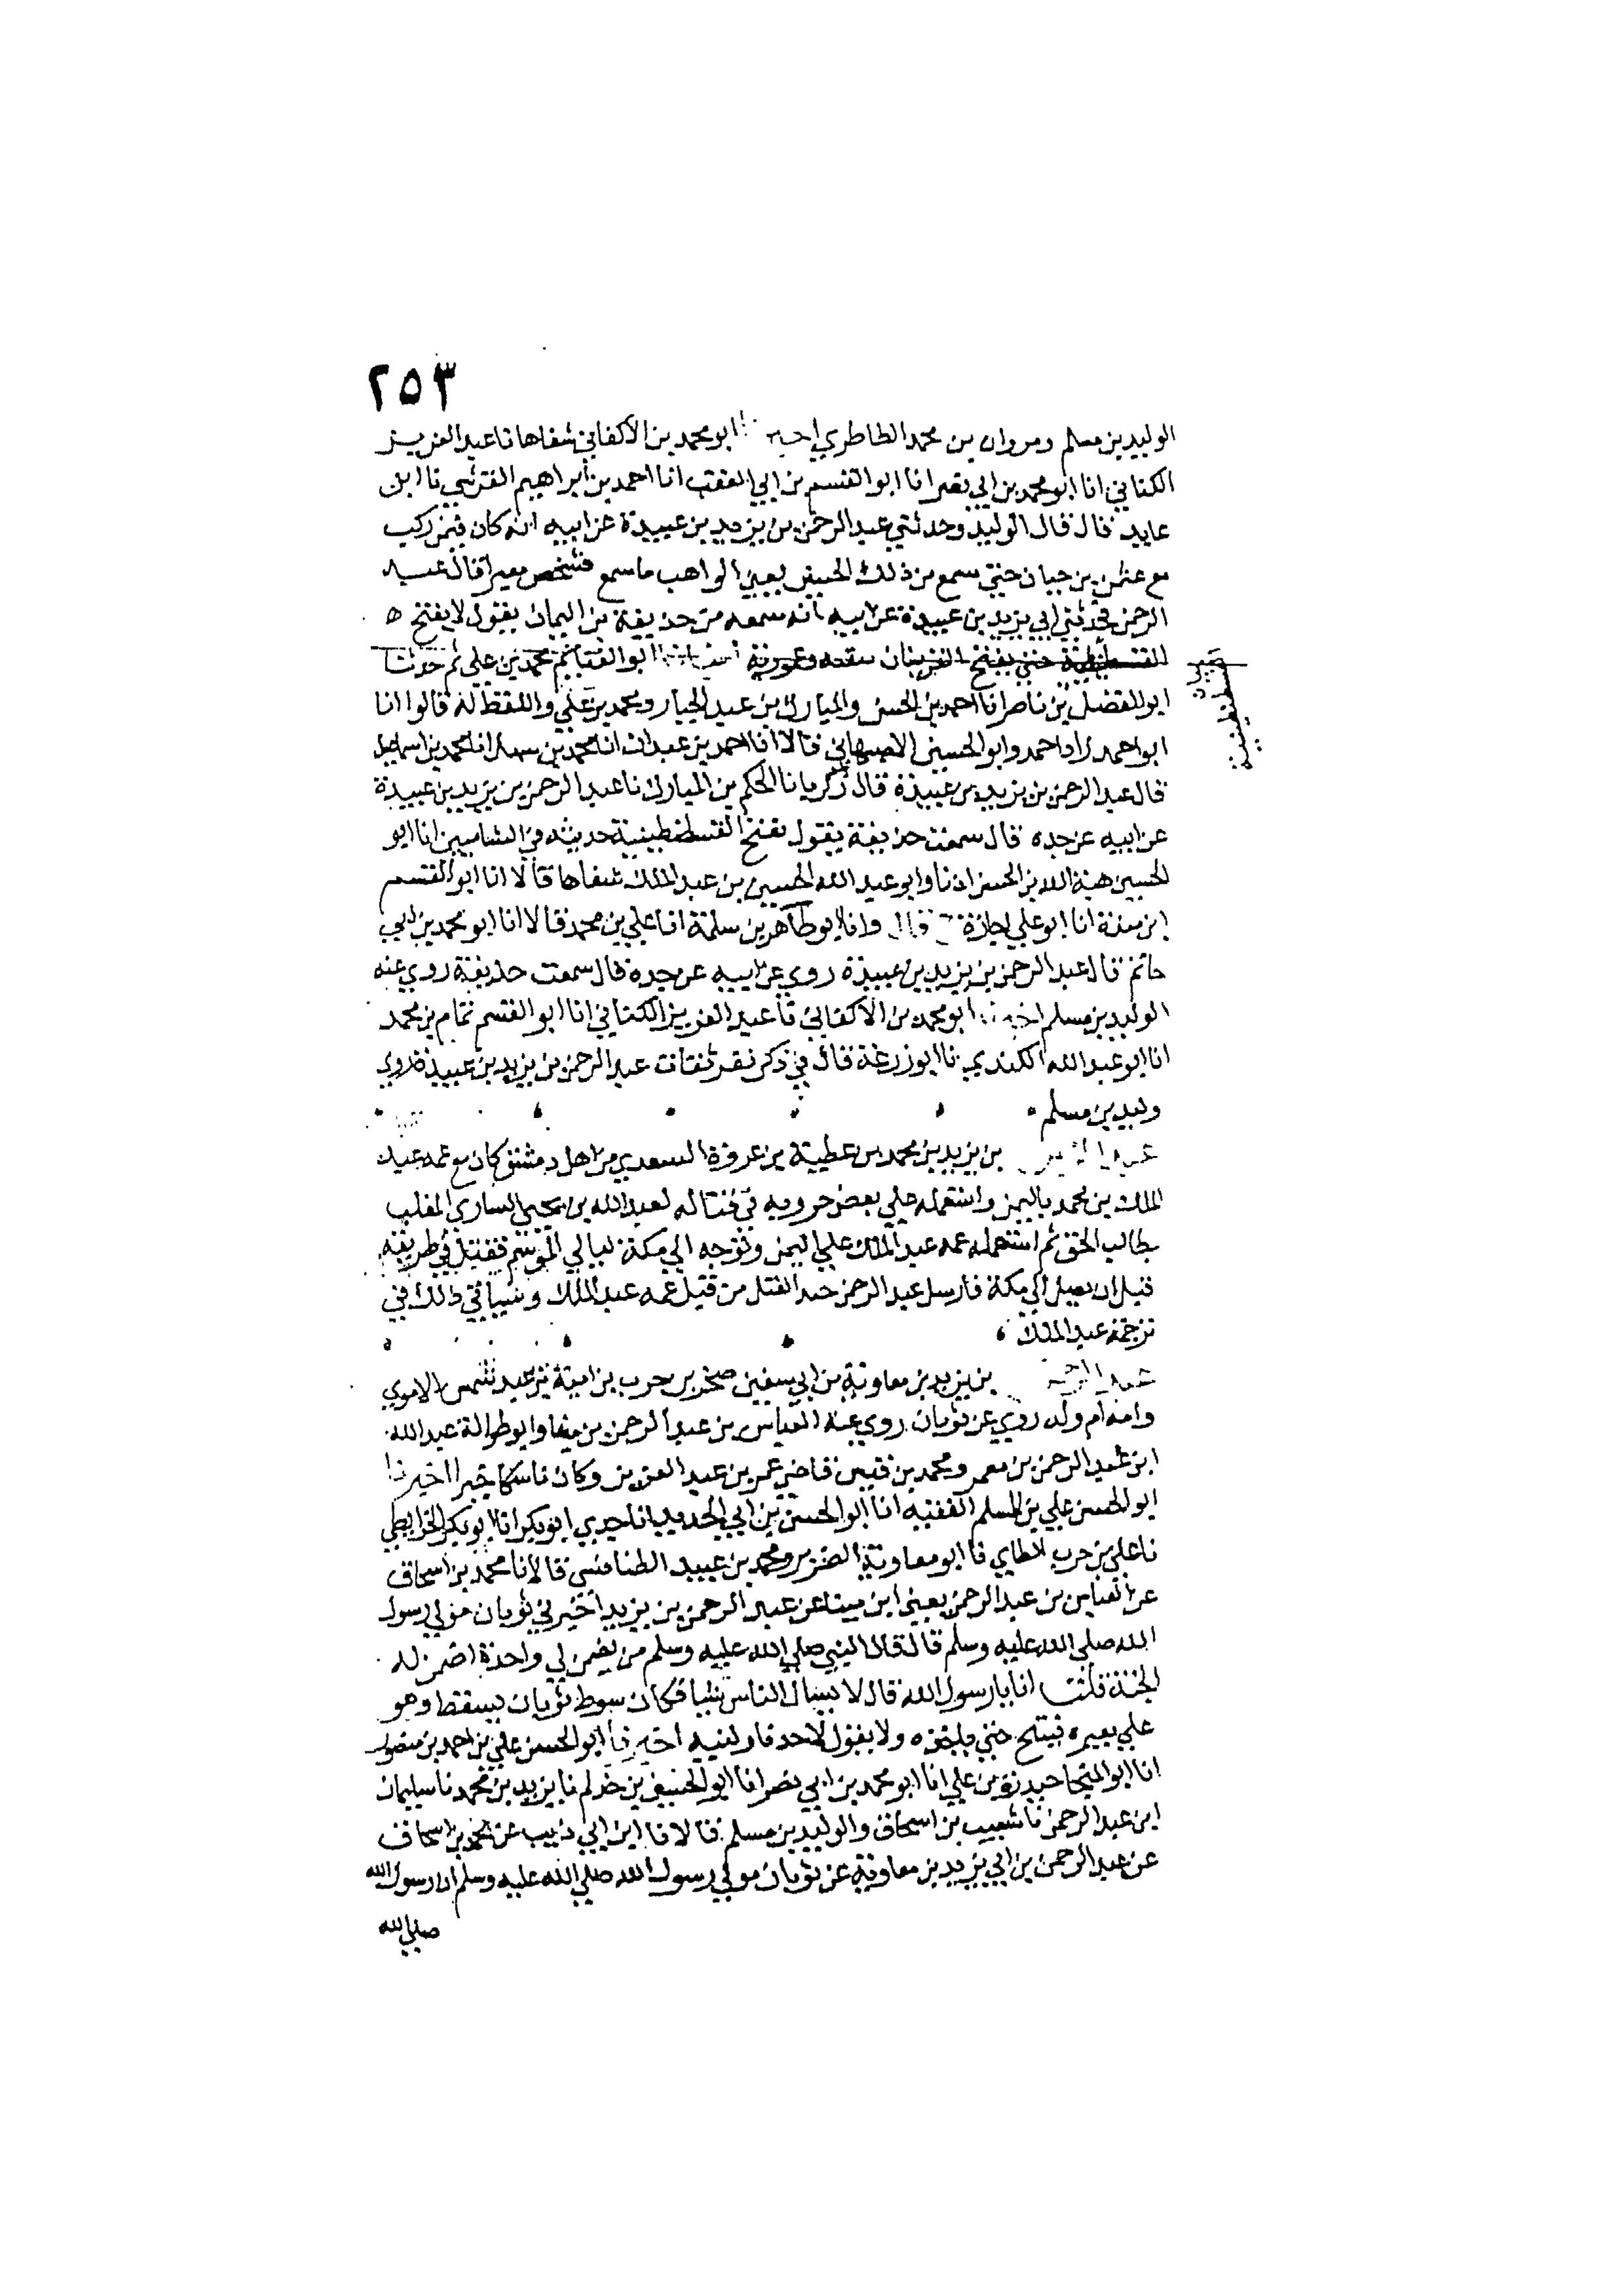 ٢٥٣
الوليد بن مسلم ومروان بن محمد الطاطري ابو محمد بن الاكفاني شفاها نا عبد العزيز
الكتاني انا ابو محمد بن ابي نصر انا ابو القسم بن ابي العقب انا احمد بن ابراهيم القرشي نا ابن
عايد قال قال الوليد وحدثني عبد الرحمن بن يزيد بن عبيدة عن ابيه انه كان فيمن ركب
مع عثمن بن حيان حتى سمع من ذلك الحبيس يعني الواهب ما سمع فشخص معبرا قال عبد
الرحمن فحدثني ابي يزيد بن عبيدة عن ابيه انه سمعه من حذيفة بن اليمان يقول لا يفتح
القسطنطينية حتى يفتح القريتان وعمورية ابو الغنايم محمد بن علي ثم حدثنا
ابو الفضل بن ناصر انا احمد بن الحسن والمبارك بن عبد الجبار ومحمد بن علي واللفظ له قالوا انا
ابو احمد زاد احمد وابو الحسين الاصبهاني قالا انا احمد بن عبدان انا محمد بن سهل انا محمد بن اسماعيل
قال عبد الرحمن بن يزيد بن عبيدة قال زكريا نا الحكم بن المبارك نا عبد الرحمن بن يزيد بن عبيدة
عن ابيه عن جده قال سمعت حذيفة يقول تفتح القسطنطينية حديثه في الشاميين انا ابو
الحسين هبة الله بن الحسن اذنا وابو عبد الله الحسين بن عبد الملك شفاها قالا انا ابو القسم
ابن مندة انا ابو علي اجازة ح قال وانا ابو طاهر بن سلمة انا علي بن محمد قالا انا ابو محمد بن ابي
حاتم قال عبد الرحمن بن يزيد بن عبيدة روى عن ابيه عن جده قال سمعت حذيفة روى عنه
الوليد بن مسلم ابو محمد بن الاكفاني نا عبد العزيز الكتاني انا ابو القسم تمام بن محمد
انا ابو عبد الله الكندي نا ابو زرعة قال في ذكر نفر ثقات عبد الرحمن بن يزيد بن عبيدة روى
وليد بن مسلم
بن يزيد بن محمد بن عطية بن عروة السعدي من اهل دمشق كان مع عمه عبد
الملك بن محمد باليمن واستعمله على بعض حروبه في قتاله لعبد الله بن يحيى الساري الملقب
بطالب الحق ثم استعمله عمه عبد الملك على اليمن وتوجه الى مكة ليالي الموسم فقتل في طريقه
قبل ان يصل الى مكة فارسل عبد الرحمن من قتل عمه عبد الملك وسياتي ذلك في
ترجمة عبد الملك
بن يزيد بن معاوية بن ابي سفين صخر بن حرب بن امية بن عبد شمس الاموي
وامه ام ولد روى عن ثوبان روى عنه العباس بن عبد الرحمن بن مينا وابو طوالة عبد الله
ابن عبد الرحمن بن معمر ومحمد بن قيس قاضي عمر بن عبد العزيز وكان ناسكا خيرا اخبرنا
ابو الحسن علي بن المسلم الفقيه انا ابو الحسن بن ابي الحديد انا جدي ابو بكر انا ابو بكر الخرايطي
نا علي بن حرب الطاي نا ابو معاوية الضرير ومحمد بن عبيد الطنافسي قالا نا محمد بن اسحاق
عن العباس بن عبد الرحمن يعني ابن مينا عن عبد الرحمن بن يزيد اخبرني ثوبان مولى رسول
الله صلى الله عليه وسلم قال قال النبي صلى الله عليه وسلم من يضمن لي واحدة اضمن له
الجنة قلت انا يا رسول الله قال لا يسال الناس شيا فكان سوط ثوبان يسقط وهو
على بعيره فينيخ حتى ياخذه ولا يقول لاحد ناولنيه اخبرنا ابو الحسن علي بن احمد بن منصور
انا ابو المنجا حيدرة بن علي انا ابو محمد بن ابي نصر انا ابو الحسن بن حذلم نا يزيد بن محمد نا سليمان
ابن عبد الرحمن نا شعيب بن اسحاق والوليد بن مسلم قالا نا ابن ابي ذيب عن محمد بن اسحاق
عن عبد الرحمن بن ابي يزيد بن معاوية عن ثوبان مولى رسول الله صلى الله عليه وسلم ان رسول الله
صلى الله